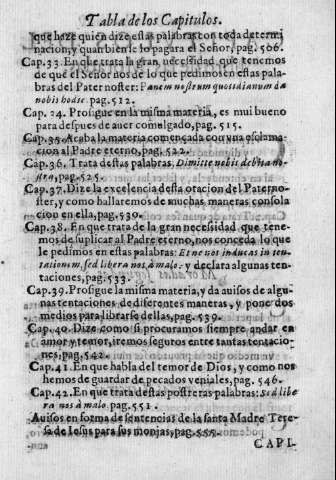 Tabla de los Capitulos.
que haze quien dize estas palabras con toda determi
nacion, y quan bien se lo pagara el Señor, pag. 506.
Cap. 33. En que trata la gran necessidad que tenemos
de que el Señor nos dè lo que pedimos en estas pala
bras del Pater noster: Panem nostrum quotidianum da
nobis hodie. pag. 512.
Cap. 34. Prosigue en la misma materia, es mui bueno
para despues de auer comulgado, pag. 515.
Cap. 35. Acaba la materia començada con vna esclama-
cion al Padre eterno, pag. 522.
Cap. 36. Trata destas palabras. Dimitte nobis debita no-
stra, pag. 525.
Cap. 37. Dize la excelencia desta oracion del Paterno-
ster, y como hallaremos de muchas maneras consola
cion en ella, pag. 530.
Cap. 38. En que trata de la gran necessidad que tene-
mos de suplicar al Padre eterno, nos conceda lo que
le pedimos en estas palabras: Et ne nos inducas in ten-
tationem, sed libera nos à malo: y declara algunas ten-
taciones, pag. 533.
Cap. 39. Prosigue la misma materia, y da auisos de algu-
nas tentaciones de diferentes maneras, y pone dos
medios para librarse dellas, pag. 539.
Cap. 40. Dize como si procuramos siempre andar en
amor y temor, iremos seguros entre tantas tentacio-
nes, pag. 542.
Cap. 41. En que habla del temor de Dios, y como nos
hemos de guardar de pecados veniales, pag. 546.
Cap. 42. En que trata destas postreras palabras: Sed libe
ra nos à malo. pag. 551.
Auisos en forma de sentencias de la santa Madre Tere-
sa de Iesus para sus monjas, pag. 555.
CAPI-